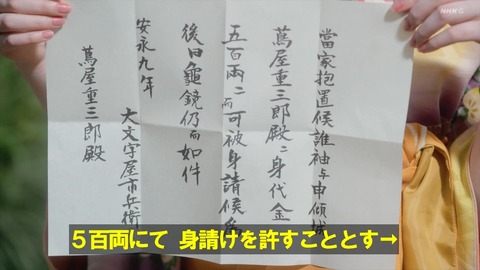 NHK G
當家抱置候誰袖与申傾城
蔦屋重三郎殿ニ身代金
五百両ニ而可被身請候為
後日龜鏡仍而如件
安永九年
大文字屋市兵衛
蔦屋重三郎殿
５百両にて 身請けを許すこととす→